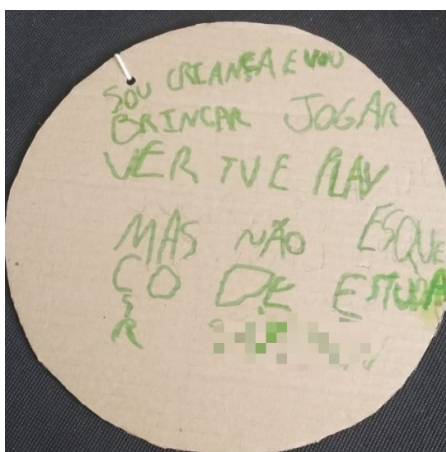 SOU CRIANÇA E VOU
BRINCAR JOGAR
VER TV E PLAY
MAS NÃO ESQUE
ÇO DE ESTUDA
R